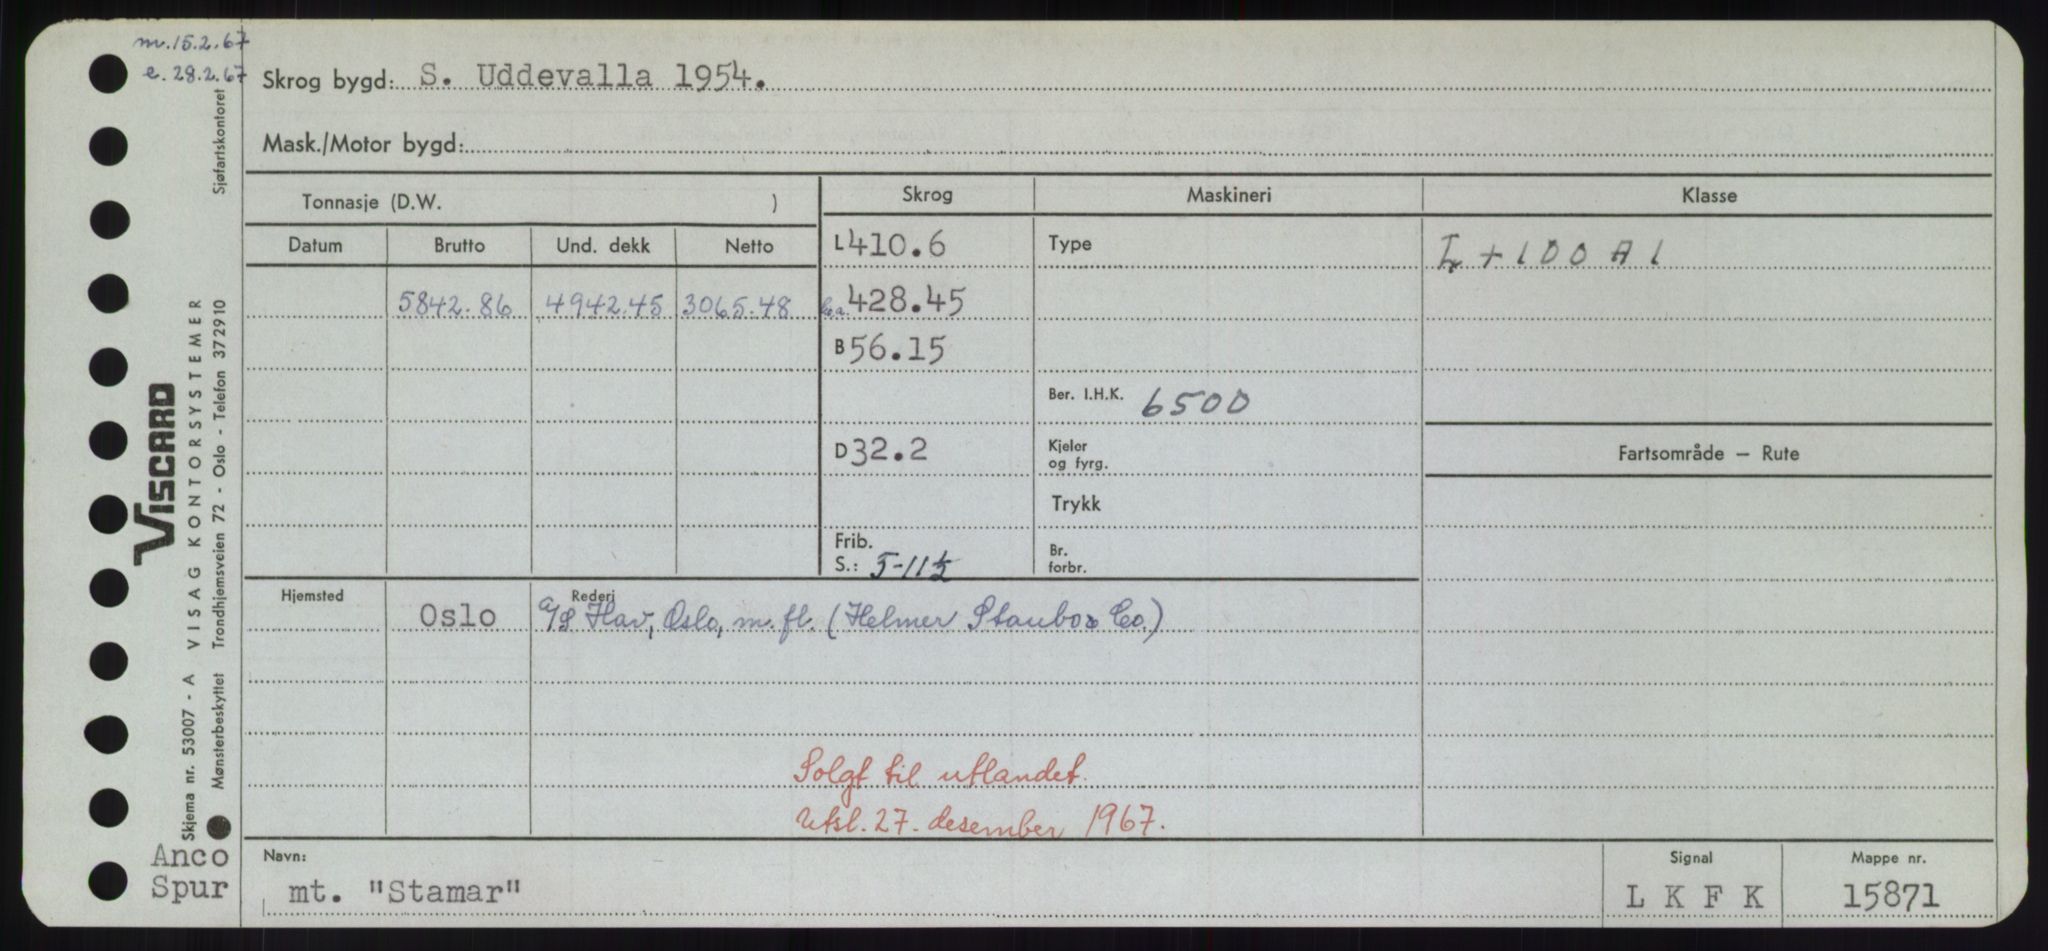 m. 15.2.67
e. 28.2.67
Skrog bygd: S. Uddevalla 1954.
Mask./Motor bygd:
Tonnasje (D.W. )
Skrog
Maskineri
Klasse
Datum
Brutto
Und. dekk
Netto
L 410.6
Type
+ 100 A 1
5842.86
4942.45
3065.48
l.a. 428.45
B 56.15
Ber. I.H.K. 6500
D 32.2
Kjeler
og fyrg.
Fartsområde — Rute
Trykk
Frib.
S.: 5-11½
Br.
forbr.
Hjemsted
Oslo
Rederi
A/S Hav, Oslo, m.fl. (Helmer Staubo & Co.)
Solgt til utlandet.
Utsl. 27. desember 1967.
Navn:
mt. "Stamar"
Signal
L K F K
Mappe nr.
15871
Anco
Spur
Skjema nr. 53007 - A VISAG KONTORSYSTEMER
Mønsterbeskyttet Trondhjemsveien 72 - Oslo - Telefon 372910 Sjøfartskontoret
VISCARD